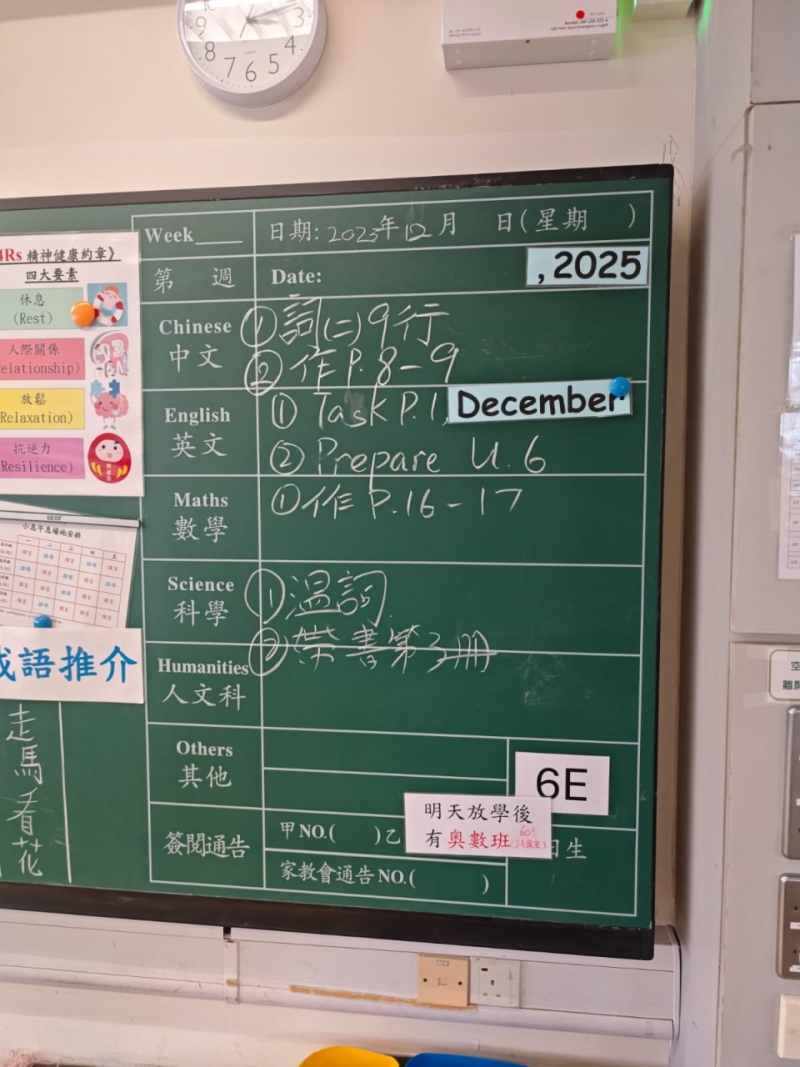 Week____ 日期: 2023年12月 日(星期 )
第 週 Date: , 2025
Chinese 中文
①詞(二)9行
②作P.8-9
English 英文
① Task P.1, December
② Prepare U.6
Maths 數學
①作 P.16-17
Science 科學
①溫詞
②帶書第3冊
Humanities 人文科
Others 其他
6E
簽閱通告
甲NO.( )乙
家教會通告NO.( )
明天放學後
有奧數班
605
日生
4Rs 精神健康約章》
四大要素
休息
(Rest)
人際關係
elationship)
放鬆
Relaxation)
抗逆力
Resilience)
小息午息場地安排
成語推介
走馬看花
10 9 8 7 6 5 4 3